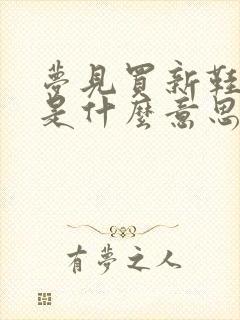 夢見買新鞋
是什麼意思
有夢之人